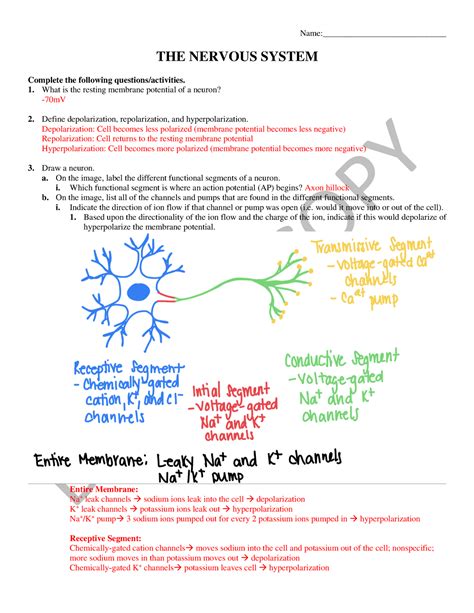 Name:
THE NERVOUS SYSTEM
Complete the following questions/activities.
1. What is the resting membrane potential of a neuron?
-70mV
2. Define depolarization, repolarization, and hyperpolarization.
Depolarization: Cell becomes less polarized (membrane potential becomes less negative)
Repolarization: Cell returns to the resting membrane potential
Hyperpolarization: Cell becomes more polarized (membrane potential becomes more negative)
3. Draw a neuron.
a. On the image, label the different functional segments of a neuron.
i. Which functional segment is where an action potential (AP) begins? Axon hillock
b. On the image, list all of the channels and pumps that are found in the different functional segments.
i. Indicate the direction of ion flow if that channel or pump was open (i.e. would it move into or out of the cell).
1. Based upon the directionality of the ion flow and the charge of the ion, indicate if this would depolarize of
hyperpolarize the membrane potential.
Transmissive Segment
- Voltage-gated Ca++
channels
- Ca++ pump
Receptive Segment
- Chemically-gated
cation, K+, and Cl-
channels
Intial Segment
- Voltage-gated
Na+ and K+
channels
Conductive Segment
- Voltage-gated
Na+ and K+
channels
Entire Membrane: Leaky Na+ and K+ channels
Na+/K+ pump
Entire Membrane:
Na+ leak channels → sodium ions leak into the cell → depolarization
K+ leak channels → potassium ions leak out → hyperpolarization
Na+/K+ pump → 3 sodium ions pumped out for every 2 potassium ions pumped in → hyperpolarization
Receptive Segment:
Chemically-gated cation channels → moves sodium into the cell and potassium out of the cell; nonspecific;
more sodium moves in than potassium moves out → depolarization
Chemically-gated K+ channels → potassium leaves cell → hyperpolarization
COPY